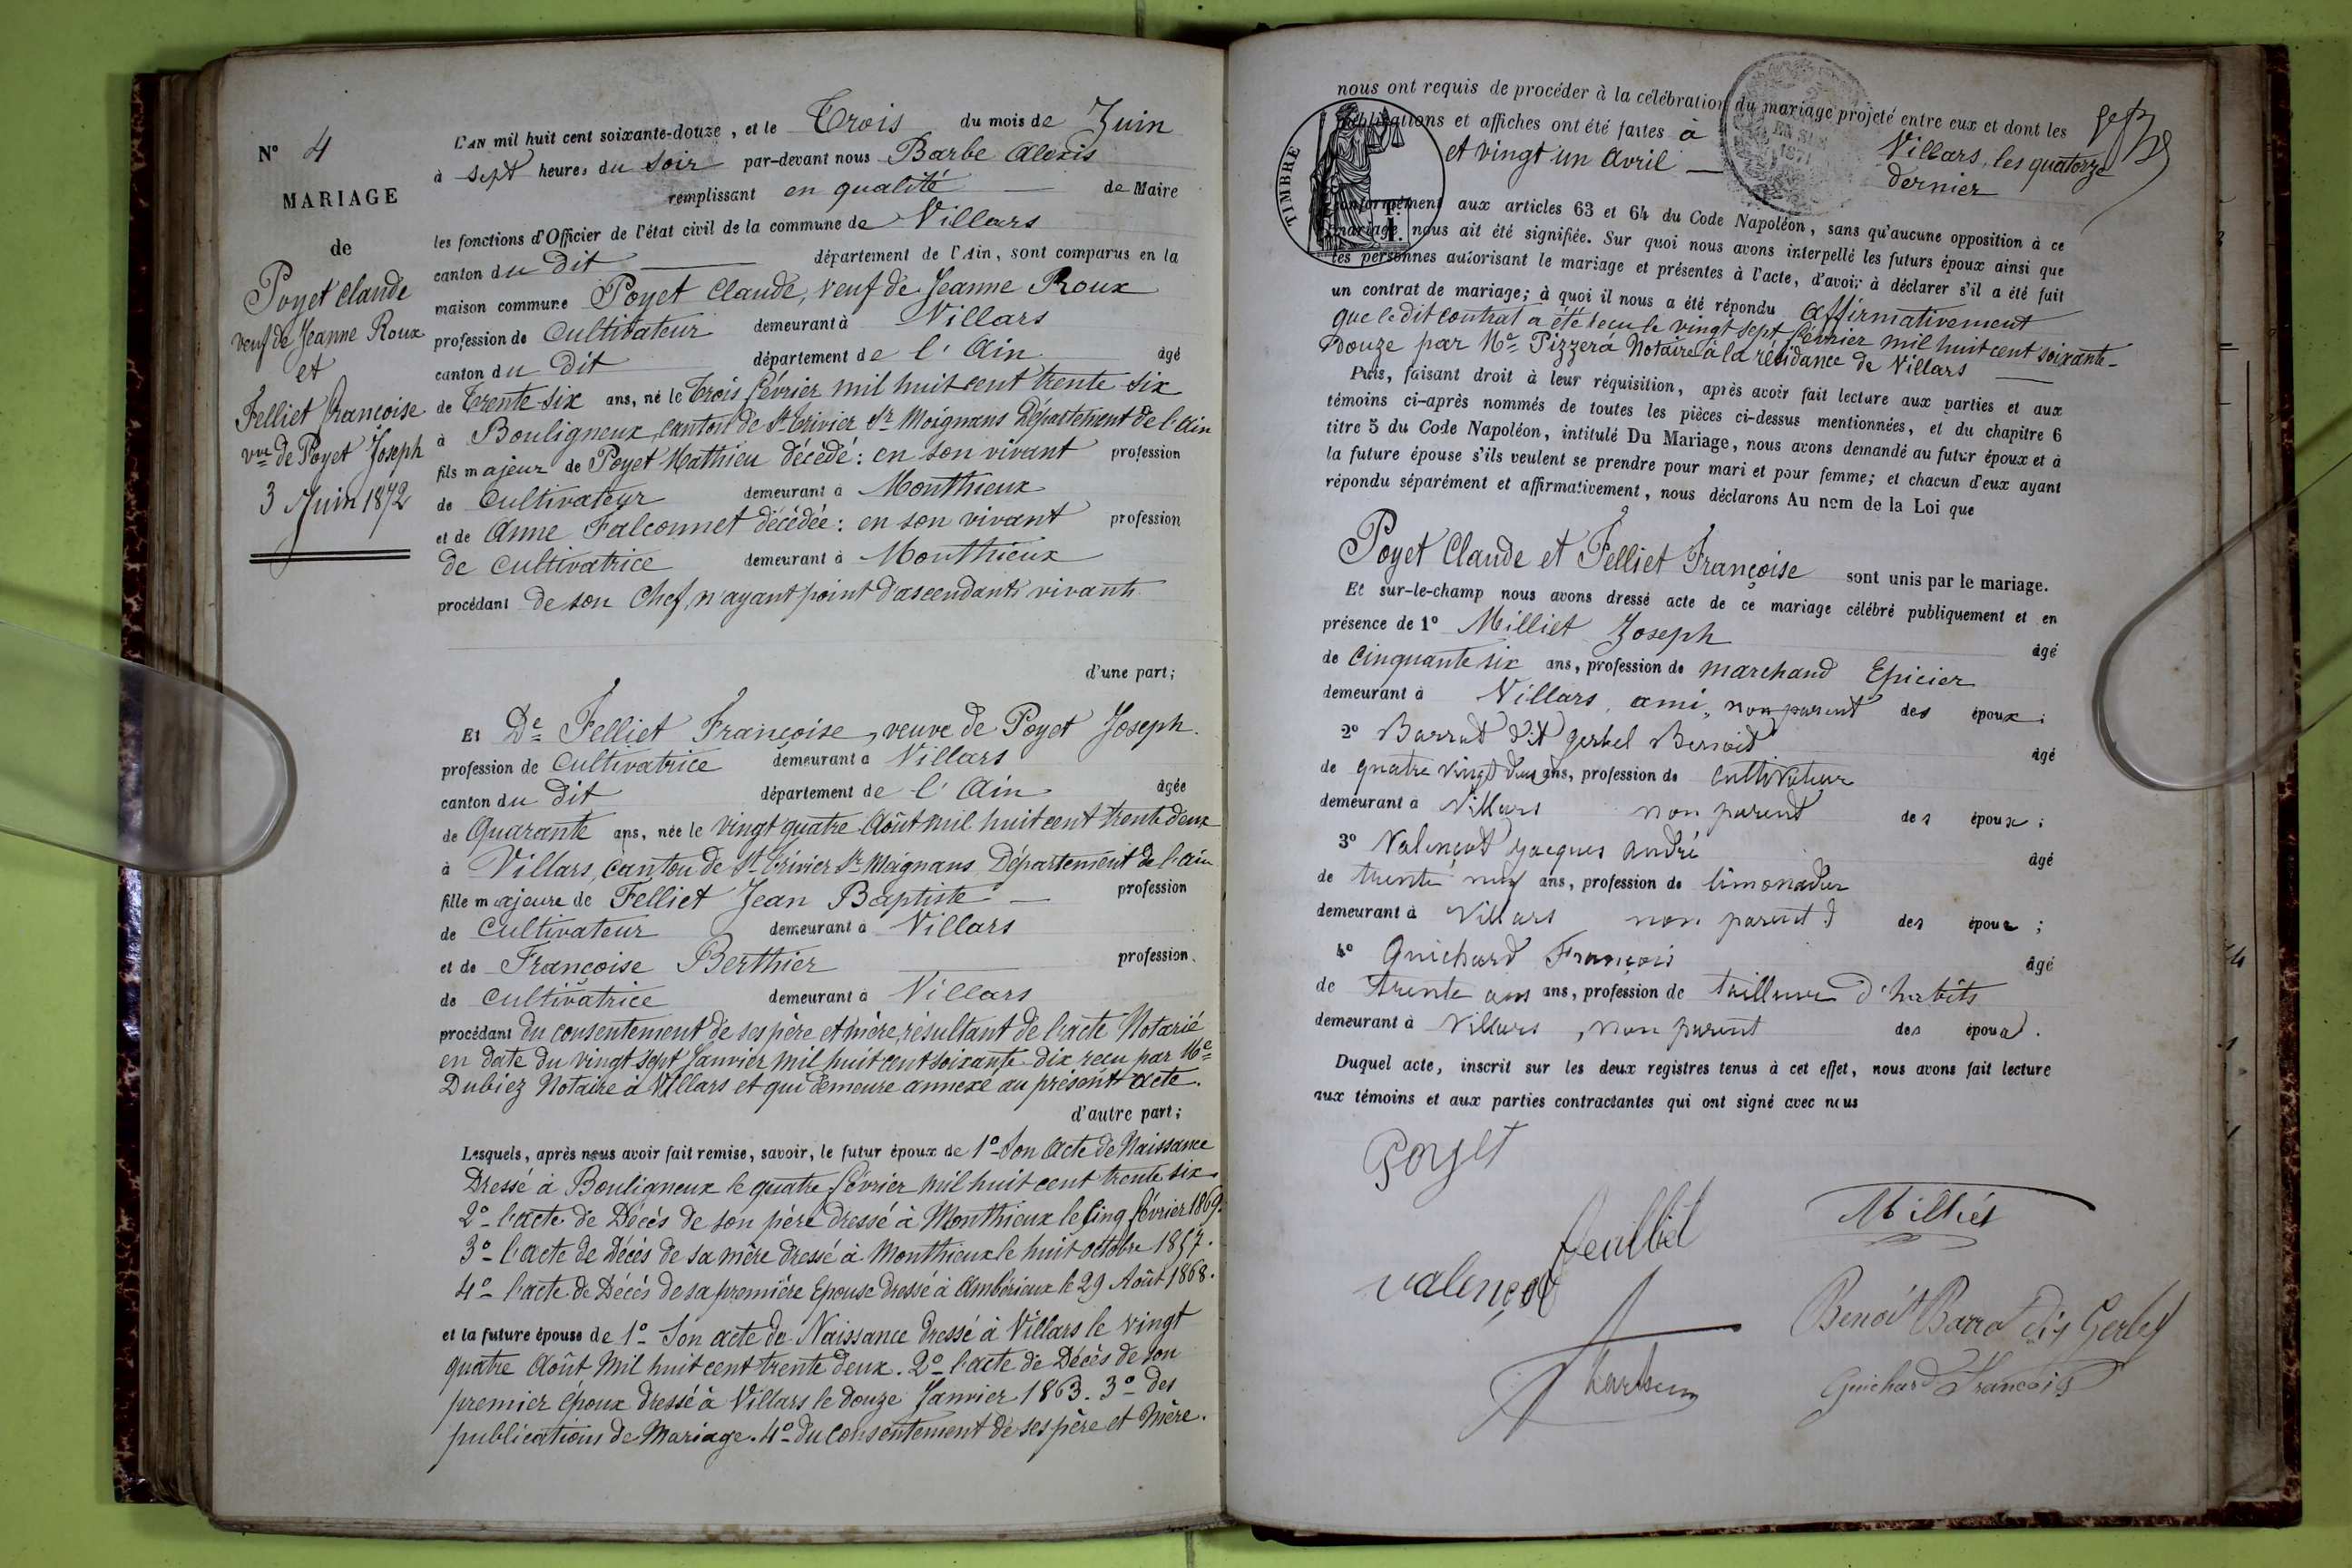 N° 4
MARIAGE
de
Poyet Claude
veuf de Jeanne Roux
et
Felliet Françoise
vve de Poyet Joseph
3 Juin 1872
L'AN mil huit cent soixante-douze, et le Trois du mois de Juin
à sept heures du soir par-devant nous Barbe Alexis
remplissant en qualité — de Maire
les fonctions d'Officier de l'état civil de la commune de Villars
canton du dit — département de l'Ain, sont comparus en la
maison commune Poyet Claude, veuf de Jeanne Roux
profession de Cultivateur demeurant à Villars
canton du dit département de l'Ain âgé
de Trente-six ans, né le Trois février mil huit cent trente six
à Bouligneux, canton de St Trivier Sr Moignans Département de l'Ain
fils majeur de Poyet Mathieu décédé: en son vivant profession
de Cultivateur demeurant à Monthieux
et de Anne Falconnet décédée: en son vivant profession
de cultivatrice demeurant à Monthieux
procédant de son Chef, n'ayant point d'ascendants vivants
d'une part;
Et De Felliet Françoise, veuve de Poyet Joseph.
profession de Cultivatrice demeurant à Villars
canton du dit département de l'Ain âgée
de Quarante ans, née le vingt quatre Août mil huit cent trente deux
à Villars, canton de St Trivier Sr Moignans Département de l'ain
fille majeure de Felliet Jean Baptiste — profession
de Cultivateur demeurant à Villars
et de Françoise Berthier — profession
de Cultivatrice demeurant à Villars
procédant du consentement de ses père et mère, résultant de l'acte Notarié
en date du vingt-sept Janvier mil huit cent soixante-dix reçu par Me
Dubiez Notaire à Villars et qui demeure annexé au présent acte.
d'autre part;
Lesquels, après nous avoir fait remise, savoir, le futur époux de 1° Son Acte de Naissance
Dressé à Bouligneux le quatre février mil huit cent trente six
2° l'acte de Décès de son père dressé à Monthieux le Cinq février 1869.
3° l'acte de Décès de sa mère dressé à Monthieux le huit octobre 1857.
4° l'acte de Décès de sa première Epouse dressé à Ambérieux le 29 Août 1868.
et la future épouse de 1° Son acte de Naissance dressé à Villars le vingt
quatre Août Mil huit cent trente deux. 2° l'acte de Décès de son
premier époux dressé à Villars le douze Janvier 1863. 3° des
publications de Mariage. 4° du consentement de ses père et Mère.
nous ont requis de procéder à la célébration du mariage projeté entre eux et dont les
publications et affiches ont été faites à Villars, les quatorze
et vingt un Avril — dernier
TIMBRE
1871
conformément aux articles 63 et 64 du Code Napoléon, sans qu'aucune opposition à ce
mariage nous ait été signifiée. Sur quoi nous avons interpellé les futurs époux ainsi que
les personnes autorisant le mariage et présentes à l'acte, d'avoir à déclarer s'il a été fait
un contrat de mariage; à quoi il nous a été répondu Affirmativement
que le dit contrat a été reçu le vingt sept février mil huit cent soixante-
Douze par Me Pizzera Notaire à la résidance de Villars —
Puis, faisant droit à leur réquisition, après avoir fait lecture aux parties et aux
témoins ci-après nommés de toutes les pièces ci-dessus mentionnées, et du chapitre 6
titre 5 du Code Napoléon, intitulé Du Mariage, nous avons demandé au futur époux et à
la future épouse s'ils veulent se prendre pour mari et pour femme; et chacun d'eux ayant
répondu séparément et affirmativement, nous déclarons Au nom de la Loi que
Poyet Claude et Felliet Françoise sont unis par le mariage.
Et sur-le-champ nous avons dressé acte de ce mariage célébré publiquement et en
présence de 1° Milliet Joseph âgé
de Cinquante six ans, profession de marchand Epicier
demeurant à Villars, ami, non parent des époux;
2° Barrad dit gerbel Benoit âgé
de quatre vingt deux ans, profession de cultivateur
demeurant à Villars non parent des époux;
3° Valençot Jacques André âgé
de trente neuf ans, profession de limonadier
demeurant à Villars non parent des époux;
4° Guichard François âgé
de trente ans ans, profession de tailleur d'habits
demeurant à Villars, non parent des époux.
Duquel acte, inscrit sur les deux registres tenus à cet effet, nous avons fait lecture
aux témoins et aux parties contractantes qui ont signé avec nous
Poyet
feuilliet
Milliet
Valençot
Benoit Barra dit Gerbel
Guichard Francois